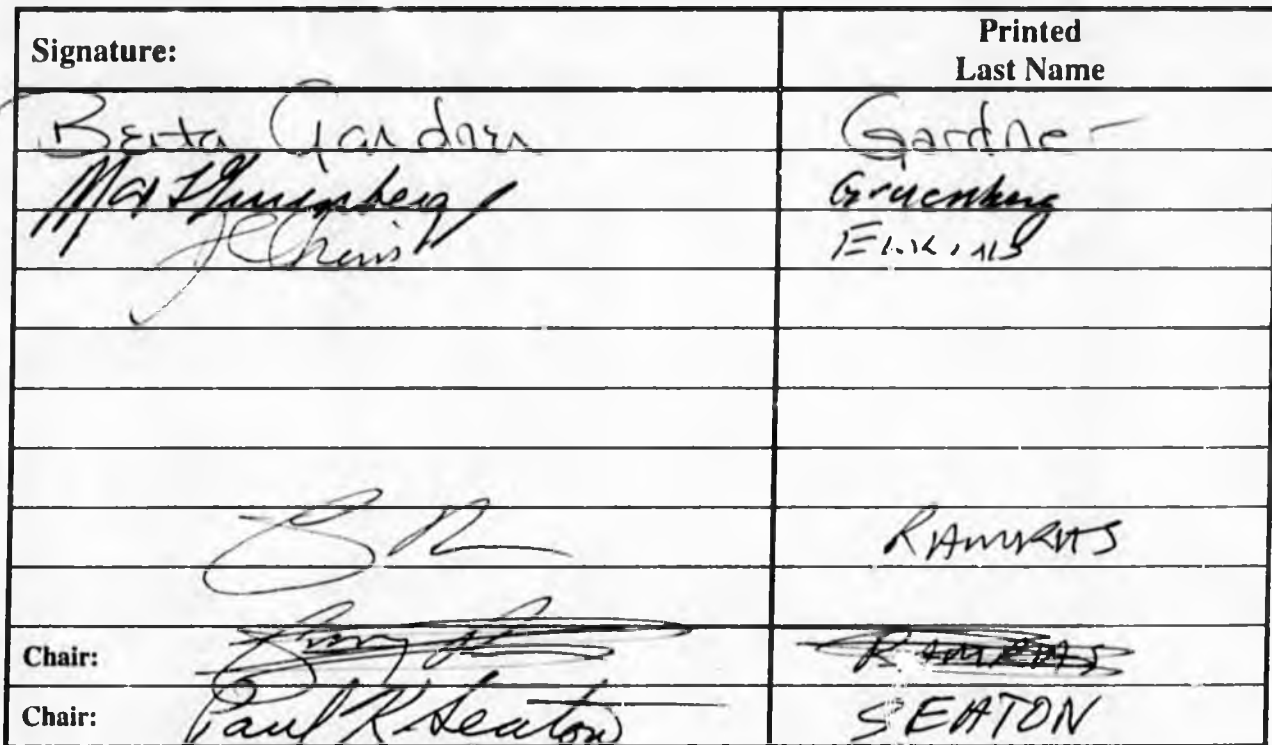 Signature: Printed
Last Name
Berta Gardner Gardner
Gruenberg
Elkins
RAMRAS
Chair: RAMRAS
Chair: Paul K Seaton SEATON